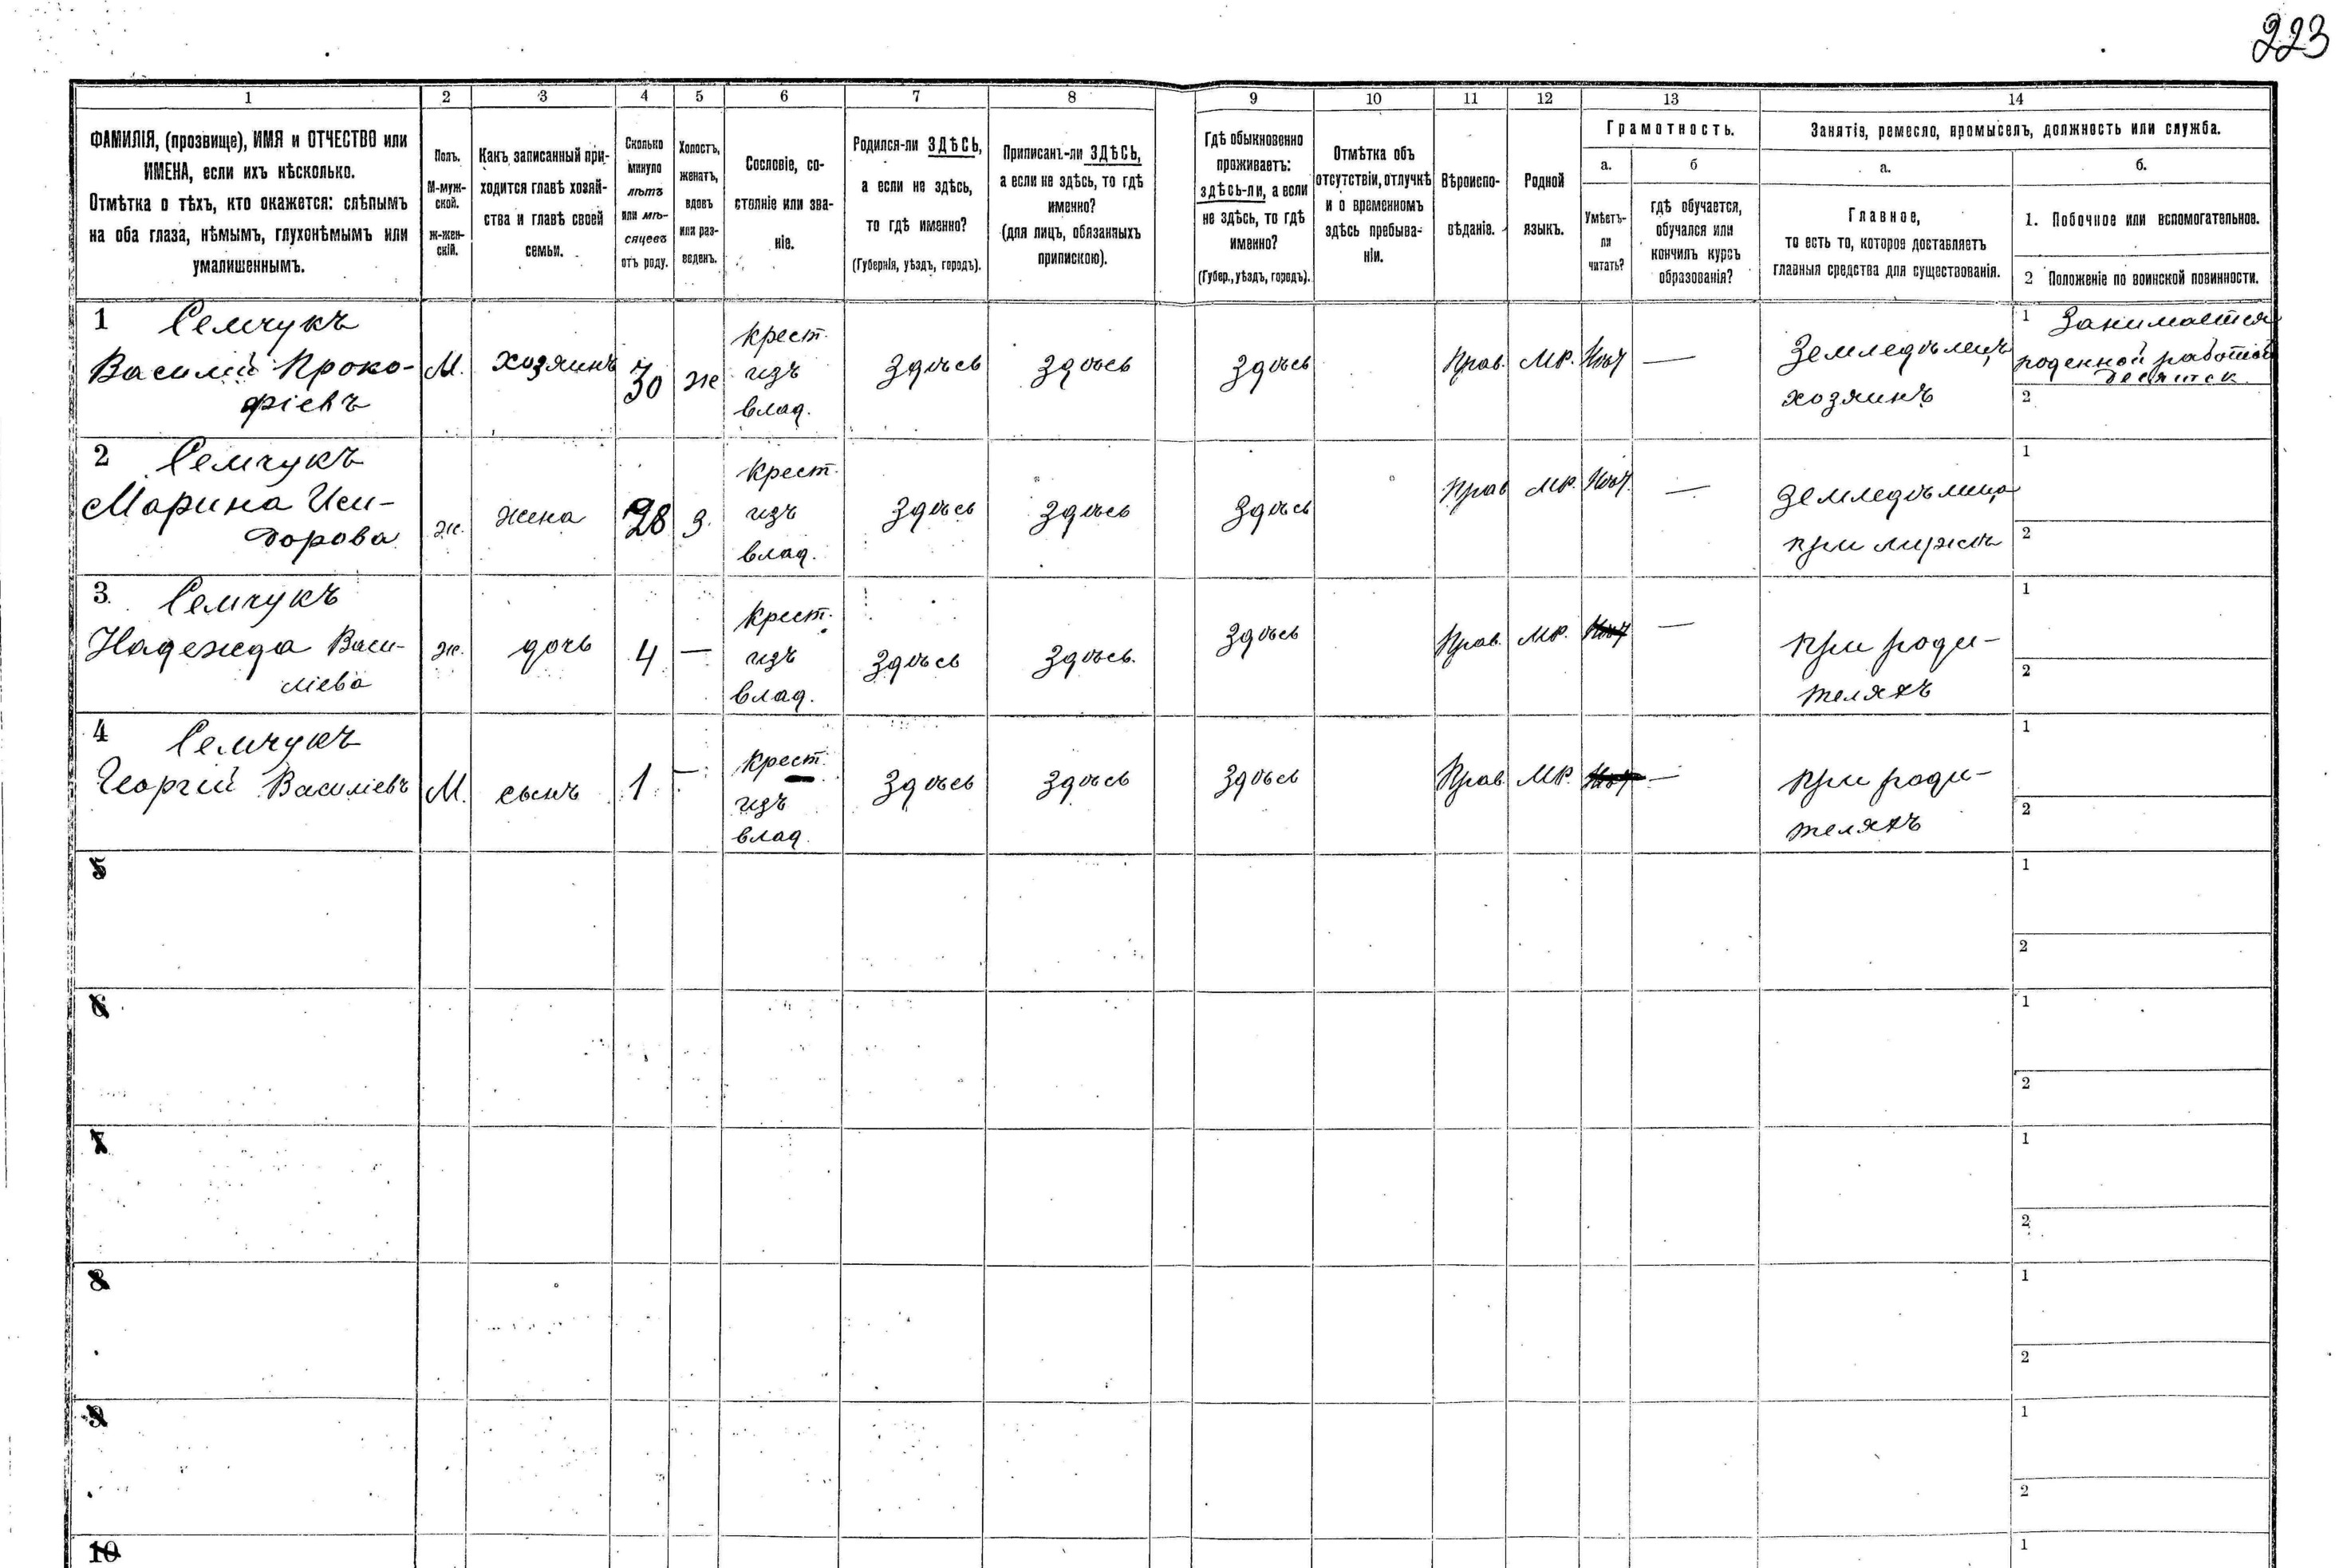 223
1 2 3 4 5 6 7 8 9 10 11 12 13 14
ФАМИЛІЯ, (прозвище), ИМЯ и ОТЧЕСТВО или
ИМЕНА, если ихъ нѣсколько.
Отмѣтка о тѣхъ, кто окажется: слѣпымъ
на оба глаза, нѣмымъ, глухонѣмымъ или
умалишеннымъ.
Полъ.
М-муж-
ской.
Ж-жен-
скій.
Какъ записанный при-
ходится главѣ хозяй-
ства и главѣ своей
семьи.
Сколько
минуло
лѣтъ
или мѣ-
сяцевъ
отъ роду.
Холостъ,
женатъ,
вдовъ
или раз-
веденъ.
Сословіе, со-
стояніе или зва-
ніе.
Родился-ли ЗДѢСЬ,
а если не здѣсь,
то гдѣ именно?
(Губернія, уѣздъ, городъ).
Приписанъ-ли ЗДѢСЬ,
а если не здѣсь, то гдѣ
именно?
(для лицъ, обязанныхъ
припискою).
Гдѣ обыкновенно
проживаетъ:
здѣсь-ли, а если
не здѣсь, то гдѣ
именно?
(Губер., уѣздъ, городъ).
Отмѣтка объ
отсутствіи, отлучкѣ
и о временномъ
здѣсь пребыва-
ніи.
Вѣроиспо-
вѣданіе.
Родной
языкъ.
Грамотность.
а.
Умѣетъ-
ли
читать?
б
гдѣ обучается,
обучался или
кончилъ курсъ
образованія?
Занятіе, ремесло, промыселъ, должность или служба.
а.
Главное,
то есть то, которое доставляетъ
главныя средства для существованія.
б.
1. Побочное или вспомогательное.
2 Положеніе по воинской повинности.
1 Семчукъ
Василій Проко-
фіевъ
М.
хозяинъ
30
же
крест.
изъ
влад.
Здѣсь
Здѣсь
Здѣсь
Прав.
МР.
Нѣт
—
Земледѣлецъ
хозяинъ
1 Занимается
работой
2
2 Семчукъ
Марина Иси-
дорова
ж.
жена
28
З.
крест.
изъ
влад.
Здѣсь
Здѣсь
Здѣсь
Прав
МР.
Нѣт.
—
Земледѣлица
при мужѣ
1
2
3. Семчукъ
Надежда Васи-
ліева
ж.
дочь
4
—
крест.
изъ
влад.
Здѣсь
Здѣсь.
Здѣсь
Прав.
МР.
—
при роди-
теляхъ
1
2
4 Семчукъ
Георгій Василіевъ
М.
сынъ
1
—
крест.
изъ
влад.
Здѣсь
Здѣсь
Здѣсь
Прав.
МР.
—
при роди-
теляхъ
1
2
5
1
2
6
1
2
7
1
2
8
1
2
9
1
2
10
1